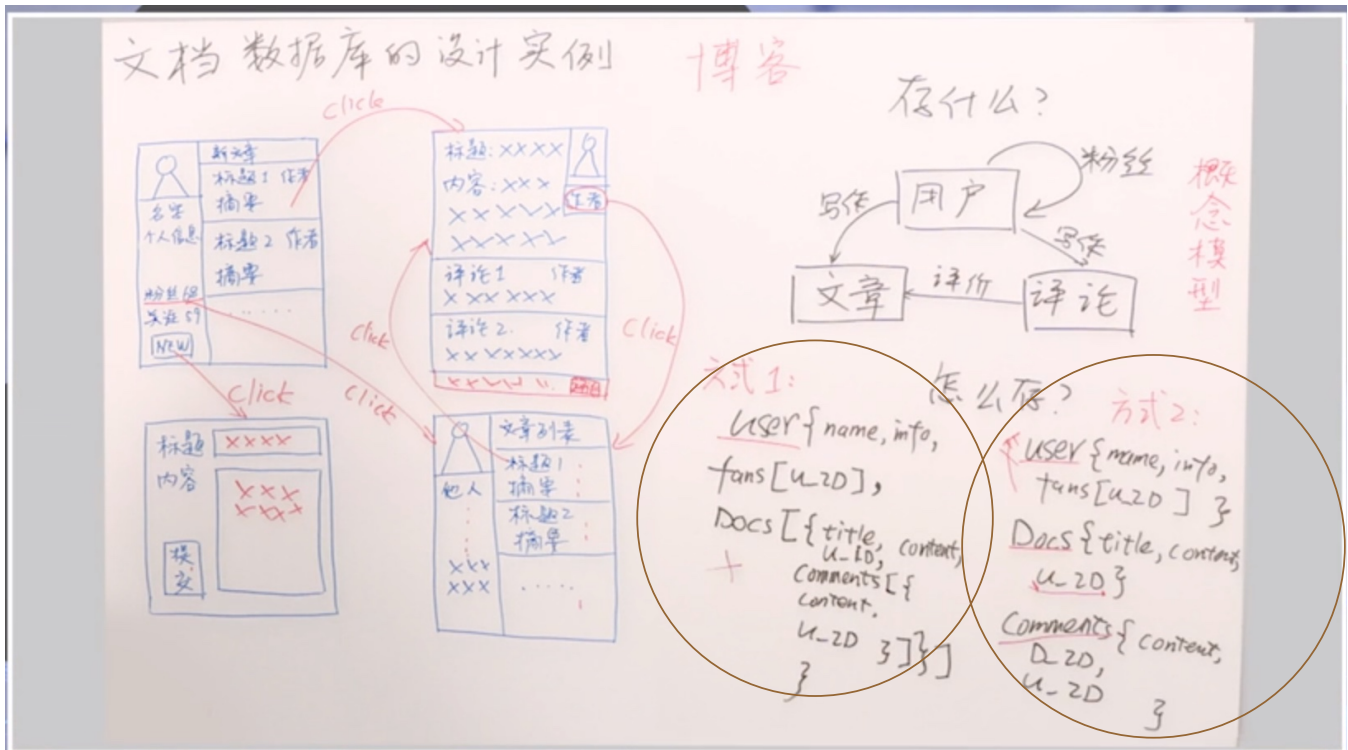 文档数据库的设计实例
博客
click
新文章
标题1 作者
摘要
名字
个人信息
标题2 作者
摘要
粉丝68
关注59
......
NEW
标题:××××
内容:×××
×××××
×××××
作者
评论1 作者
××××××
评论2. 作者
×××××××
click
click
click
click
标题
××××
内容
×××
××××
提交
文章列表
标题1
摘要
他人
标题2
摘要
×××
×××
.....
存什么?
粉丝
写作
用户
写作
文章
评价
评论
概念模型
怎么存?
方式1:
user{name,info,
fans[U_ID],
Docs[{title, content,
U_ID,
Comments[{
content.
U_ID }]}]
}
+
方式2:
user{name,info,
fans[U_ID] }
Docs{title,content,
U_ID}
Comments{content,
D_ID,
U_ID
}